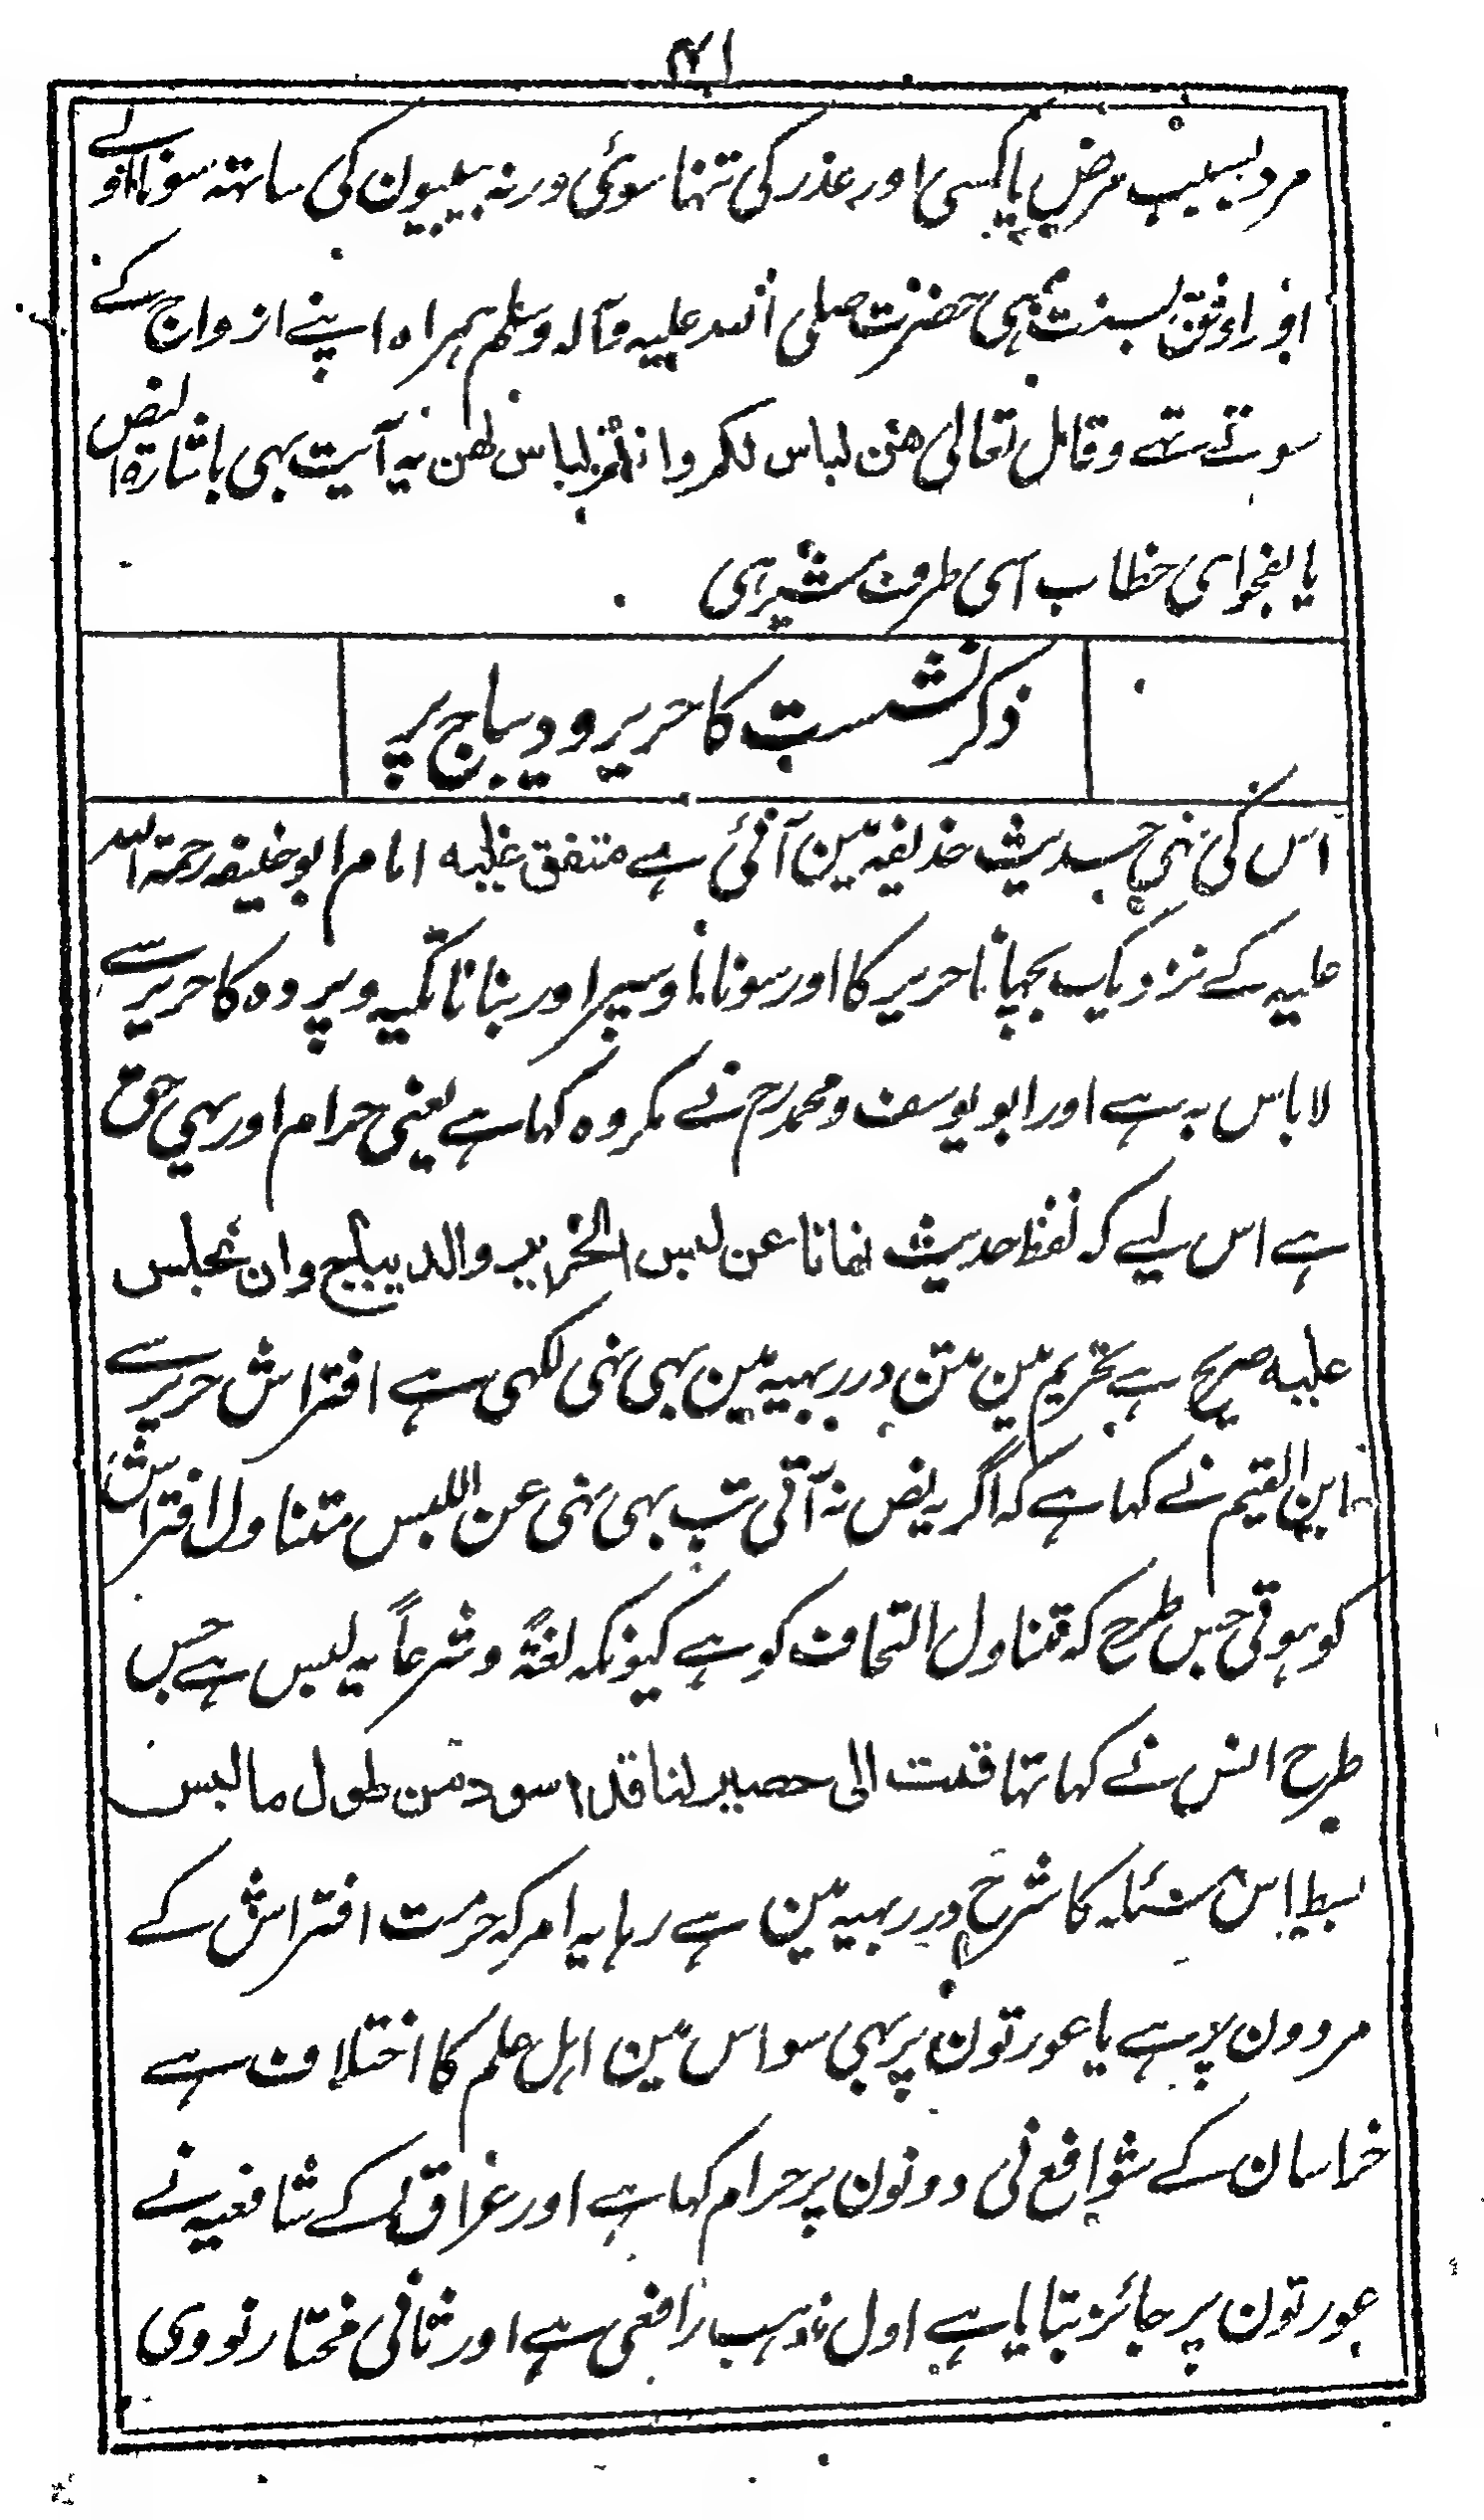 ۴۱
مرد بسبب مرض یا کسی اور عذر کی تنہا سوئی ورنہ بیبیون کی ساتھہ سونا اولے
اور اوثق بسنت ہی حضرت صلی اللہ علیہ وآلہ وسلم ہمراہ اپنے ازواج کے
سوتے تہے وقال تعالی هن لباس لکم وانتم لباس لهن یہ آیت بہی باشارۃ النص
یا بفحوای خطاب اسی طرف مشیر ہی
ذکر نشست کا حریر و دیباج پر
اس کی نہی حدیث حذیفہ مین آئی ہے متفق علیہ امام ابو حنیفہ رحمۃ اللہ
علیہ کے نزدیک بچہانا حریر کا اور سونا اوسپر اور بنانا تکیہ و پردہ کا حریر سے
لا باس بہ ہے اور ابو یوسف و محمد رح نے مکروہ کہا ہے یعنی حرام اور یہی حق
ہے اس لیے کہ لفظ حدیث نهانا عن لبس الحریر والدیباج وان نجلس
علیه صریح ہے تحریم مین متن درر بہیہ مین بہی نہی لکہی ہے افتراش حریر سے
ابن القیم نے کہا ہے کہ اگر یہ نص نہ آتی تب بہی نہی عن اللبس متناول افتراش
کو ہوتی جس طرح کہ متناول التحاف کو ہے کیونکہ لغۃً و شرعاً یہ لبس ہے جس
طرح انس نے کہا تہا قمت الی حصیر لنا قد اسود من طول ما لبس
بسط اس مسئلہ کا شرح درر بہیہ مین ہے رہا یہ امر کہ حرمت افتراش کے
مردون پر ہے یا عورتون پر بہی سو اس مین اہل علم کا اختلاف ہے
خراسان کے شوافع نی دونون پر حرام کہا ہے اور عراق کے شافعیہ نے
عورتون پر جائز بتایا ہے اول مذہب رافعی ہے اور ثانی مختار نووی